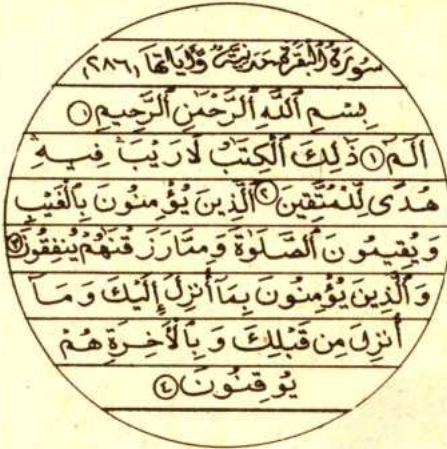 سُورَةُ ٱلْبَقَرَةِ مَدَنِيَّةٌ وَآيَاتُهَا ٢٨٦
بِسْمِ ٱللَّهِ ٱلرَّحْمَٰنِ ٱلرَّحِيمِ ۝
الٓمٓ ۝١ ذَٰلِكَ ٱلْكِتَٰبُ لَا رَيْبَ ۛ فِيهِ ۛ
هُدًى لِّلْمُتَّقِينَ ۝٢ ٱلَّذِينَ يُؤْمِنُونَ بِٱلْغَيْبِ
وَيُقِيمُونَ ٱلصَّلَوٰةَ وَمِمَّا رَزَقْنَٰهُمْ يُنفِقُونَ ۝٣
وَٱلَّذِينَ يُؤْمِنُونَ بِمَآ أُنزِلَ إِلَيْكَ وَمَآ
أُنزِلَ مِن قَبْلِكَ وَبِٱلْأَخِرَةِ هُمْ
يُوقِنُونَ ۝٤